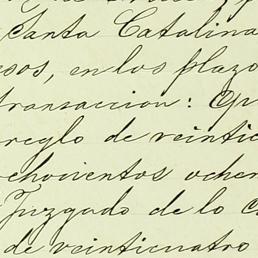 Santa Catalina
esos, en los plazo
transaccion: Qu
reglo de veintic
chocientos ochen
Juzgado de lo C
de veinticuatro